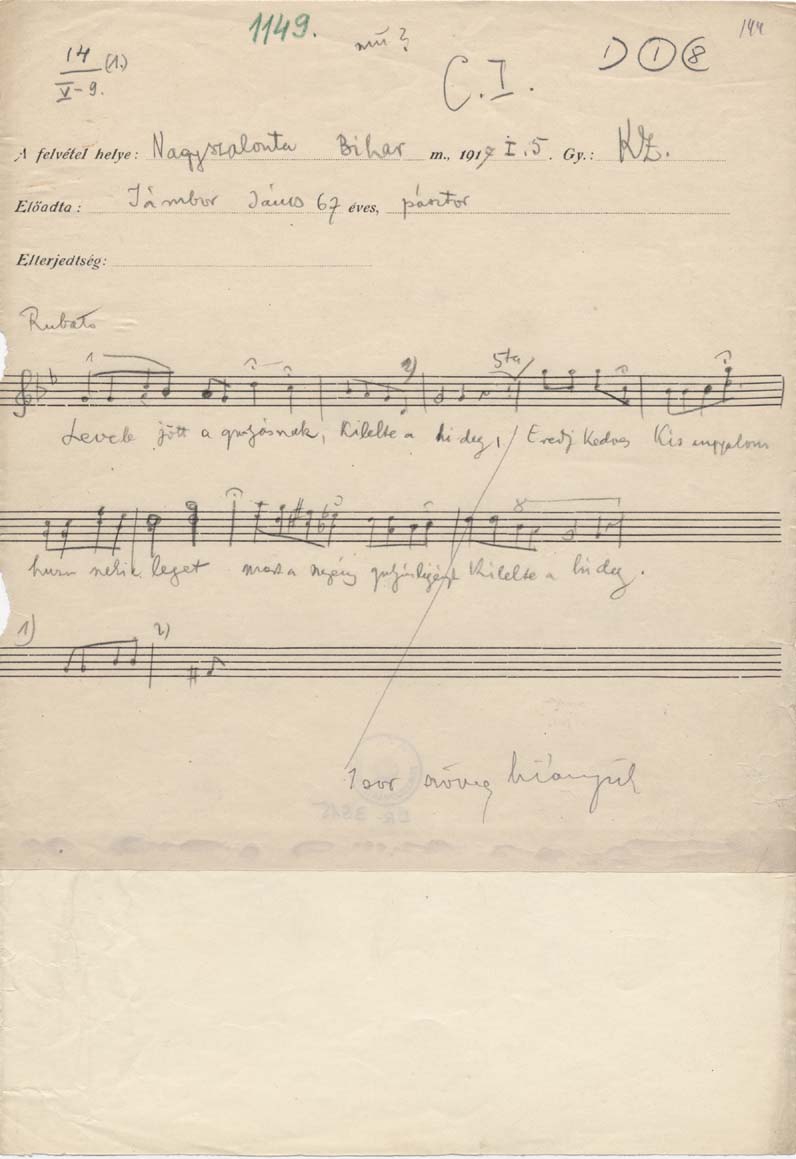 1149.
144
mü?
14 (1.)
V-9.
C.I.
1) 1 8
A felvétel helye: Nagyszalonta Bihar m., 1917 I.5. Gy.: KZ.
Előadta: Jámbor János 67 éves, pásztor
Elterjedtség:
Rubato
1 2) 5ta
Levele jött a gulyásnak, Kilelte a hideg, Eredj Kedves Kis angyalom
8
a szegény Kilelte a hideg.
1) 2)
1 sor szöveg hiányzik